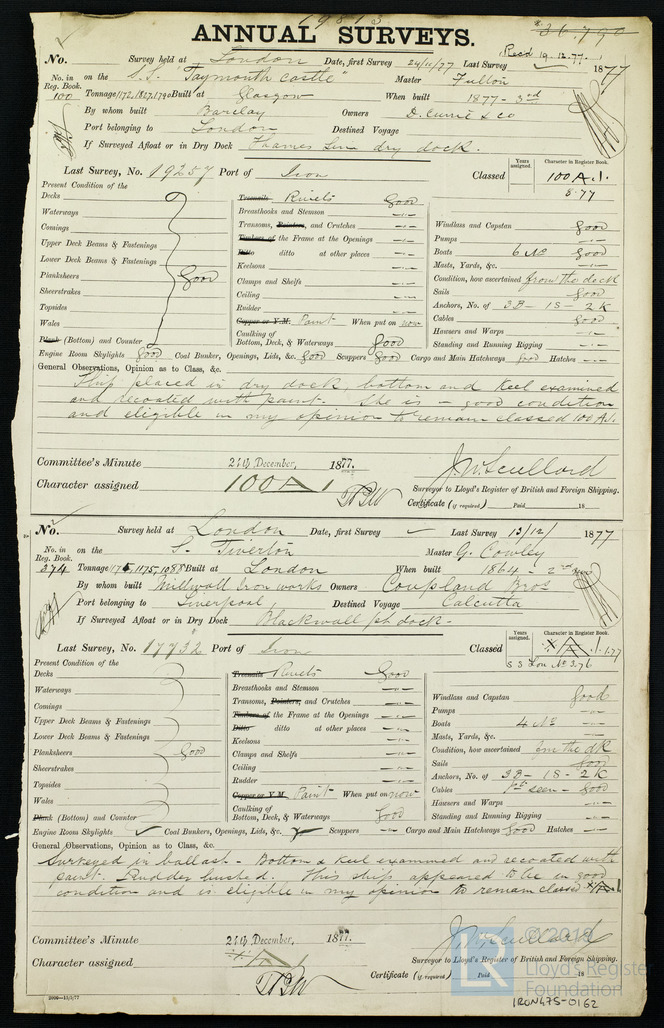 19813
ANNUAL SURVEYS.
36,790
Recd 19.12.77.
No. Survey held at London Date, first Survey 24/11/77 Last Survey 1877
No. in Reg. Book. on the S.S. "Taymouth Castle" Master Fulton
100 Tonnage 1172.1827.1790 Built at Glasgow When built 1877 - 3rd
By whom built Barclay Owners D. Currie & Co
Port belonging to London Destined Voyage
If Surveyed Afloat or in Dry Dock Thames dry dock.
Last Survey, No. 19257 Port of Iron Classed
Years assigned. Character in Register Book.
100 A.1.
8.77
Present Condition of the
Decks Treenails Rivets Good
Waterways Breasthooks and Stemson -"-
Comings Transoms, Pointers, and Crutches -"- Windlass and Capstan Good
Upper Deck Beams & Fastenings Timbers of the Frame at the Openings -"- Pumps -"-
Lower Deck Beams & Fastenings Ditto ditto at other places -"- Boats 6 No Good
Planksheers Good Keelsons -"- Masts, Yards, &c. -"-
Sheerstrakes Clamps and Shelfs -"- Condition, how ascertained from the deck
Topsides Ceiling -"- Sails Good
Wales Rudder -"- Anchors, No. of 3B - 1S - 2K
Plank (Bottom) and Counter Copper or Y.M. Paint When put on now Cables Good
Caulking of Bottom, Deck, & Waterways Good Hawsers and Warps -"-
Standing and Running Rigging -"-
Engine Room Skylights Good Coal Bunker, Openings, Lids, &c. Good Scuppers Good Cargo and Main Hatchways Good Hatches -"-
General Observations, Opinion as to Class, &c.
Ship placed in dry dock, bottom and keel examined
and recoated with paint. She is in good condition
and eligible in my opinion to remain classed 100 A1.
Committee's Minute 21st December, 1877.
Character assigned 100 A 1
J. W. Scullard
Surveyor to Lloyd's Register of British and Foreign Shipping.
Certificate (if required) Paid 18
No. Survey held at London Date, first Survey Last Survey 13/12/ 1877
No. in Reg. Book. on the S. Tiverton Master G. Cowley
274 Tonnage Built at London When built 1864 - 2nd
By whom built Millwall Iron Works Owners Coupland Bros
Port belonging to Liverpool Destined Voyage Calcutta
If Surveyed Afloat or in Dry Dock Blackwall pt dock.
Last Survey, No. 17732 Port of Iron Classed
Years assigned. Character in Register Book.
A.1. 1.77
S S Lon No 3.76
Present Condition of the
Decks Treenails Rivets Good
Waterways Breasthooks and Stemson -"-
Comings Transoms, Pointers, and Crutches -"- Windlass and Capstan Good
Upper Deck Beams & Fastenings Timbers of the Frame at the Openings -"- Pumps -"-
Lower Deck Beams & Fastenings Ditto ditto at other places -"- Boats 4 No -"-
Planksheers Good Keelsons -"- Masts, Yards, &c. -"-
Sheerstrakes Clamps and Shelfs -"- Condition, how ascertained from the dk
Topsides Ceiling -"- Sails Good
Wales Rudder -"- Anchors, No. of 3B - 1S - 2K
Plank (Bottom) and Counter Copper or Y.M. Paint When put on now Cables pt seen - Good
Caulking of Bottom, Deck, & Waterways Good Hawsers and Warps -"-
Standing and Running Rigging -"-
Engine Room Skylights Coal Bunkers, Openings, Lids, &c. Scuppers -"- Cargo and Main Hatchways Good Hatches -"-
General Observations, Opinion as to Class, &c.
Surveyed in ballast. Bottom & keel examined and recoated with
paint. Rudder bushed. This ship appeared to be in good
condition and is eligible in my opinion to remain classed A1.
Committee's Minute 21st December, 1877.
Character assigned A 1
J. W. Scullard
Surveyor to Lloyd's Register of British and Foreign Shipping.
Certificate (if required) Paid 18
2000—13/3/77
LR
© 2019
Lloyd's Register
Foundation
IRON475-0162